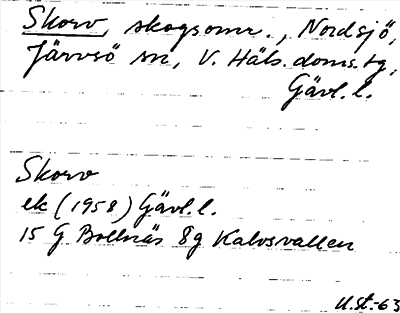 Skorv, skogsomr., Nordsjö,
Järvsö sn, V. Häls. doms.tg,
Gävl.l.
Skorv
ek (1958) Gävl.l.
15 G Bollnäs 8g Kalvsvallen
U.st.-63